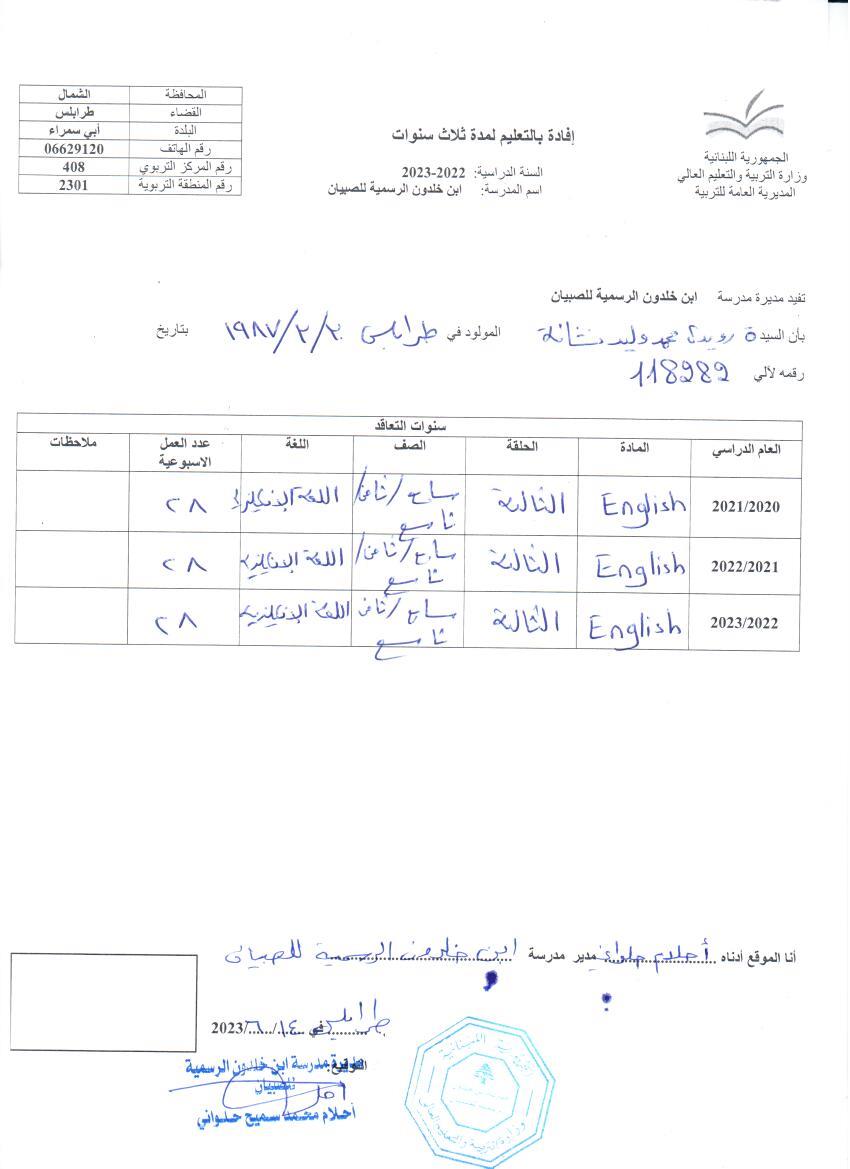 الجمهورية اللبنانية
وزارة التربية والتعليم العالي
المديرية العامة للتربية
إفادة بالتعليم لمدة ثلاث سنوات
السنة الدراسية: 2022-2023
اسم المدرسة: ابن خلدون الرسمية للصبيان
المحافظة الشمال
القضاء طرابلس
البلدة أبي سمراء
رقم الهاتف 06629120
رقم المركز التربوي 408
رقم المنطقة التربوية 2301
تفيد مديرة مدرسة ابن خلدون الرسمية للصبيان
بأن السيدة محمد وليد المولود في طرابلس ١٩٨٧/٢/٢٠ بتاريخ
رقمه لألي 118989
سنوات التعاقد
العام الدراسي المادة الحلقة الصف اللغة عدد العمل الاسبوعية ملاحظات
2021/2020 English الثالثة سابع/ثامن/تاسع اللغة الإنكليزية ٢٨
2022/2021 English الثالثة سابع/ثامن/تاسع اللغة الإنكليزية ٢٨
2023/2022 English الثالثة سابع/ثامن تاسع اللغة الإنكليزية ٢٨
أنا الموقع أدناه أحلام حلواني مدير مدرسة ابن خلدون الرسمية للصبيان
طرابلس في ١٤/٦/2023
التوقيع:
مديرة مدرسة ابن خلدون الرسمية
للصبيان
أحلام محمد سميح حلواني
وزارة التربية والتعليم العالي